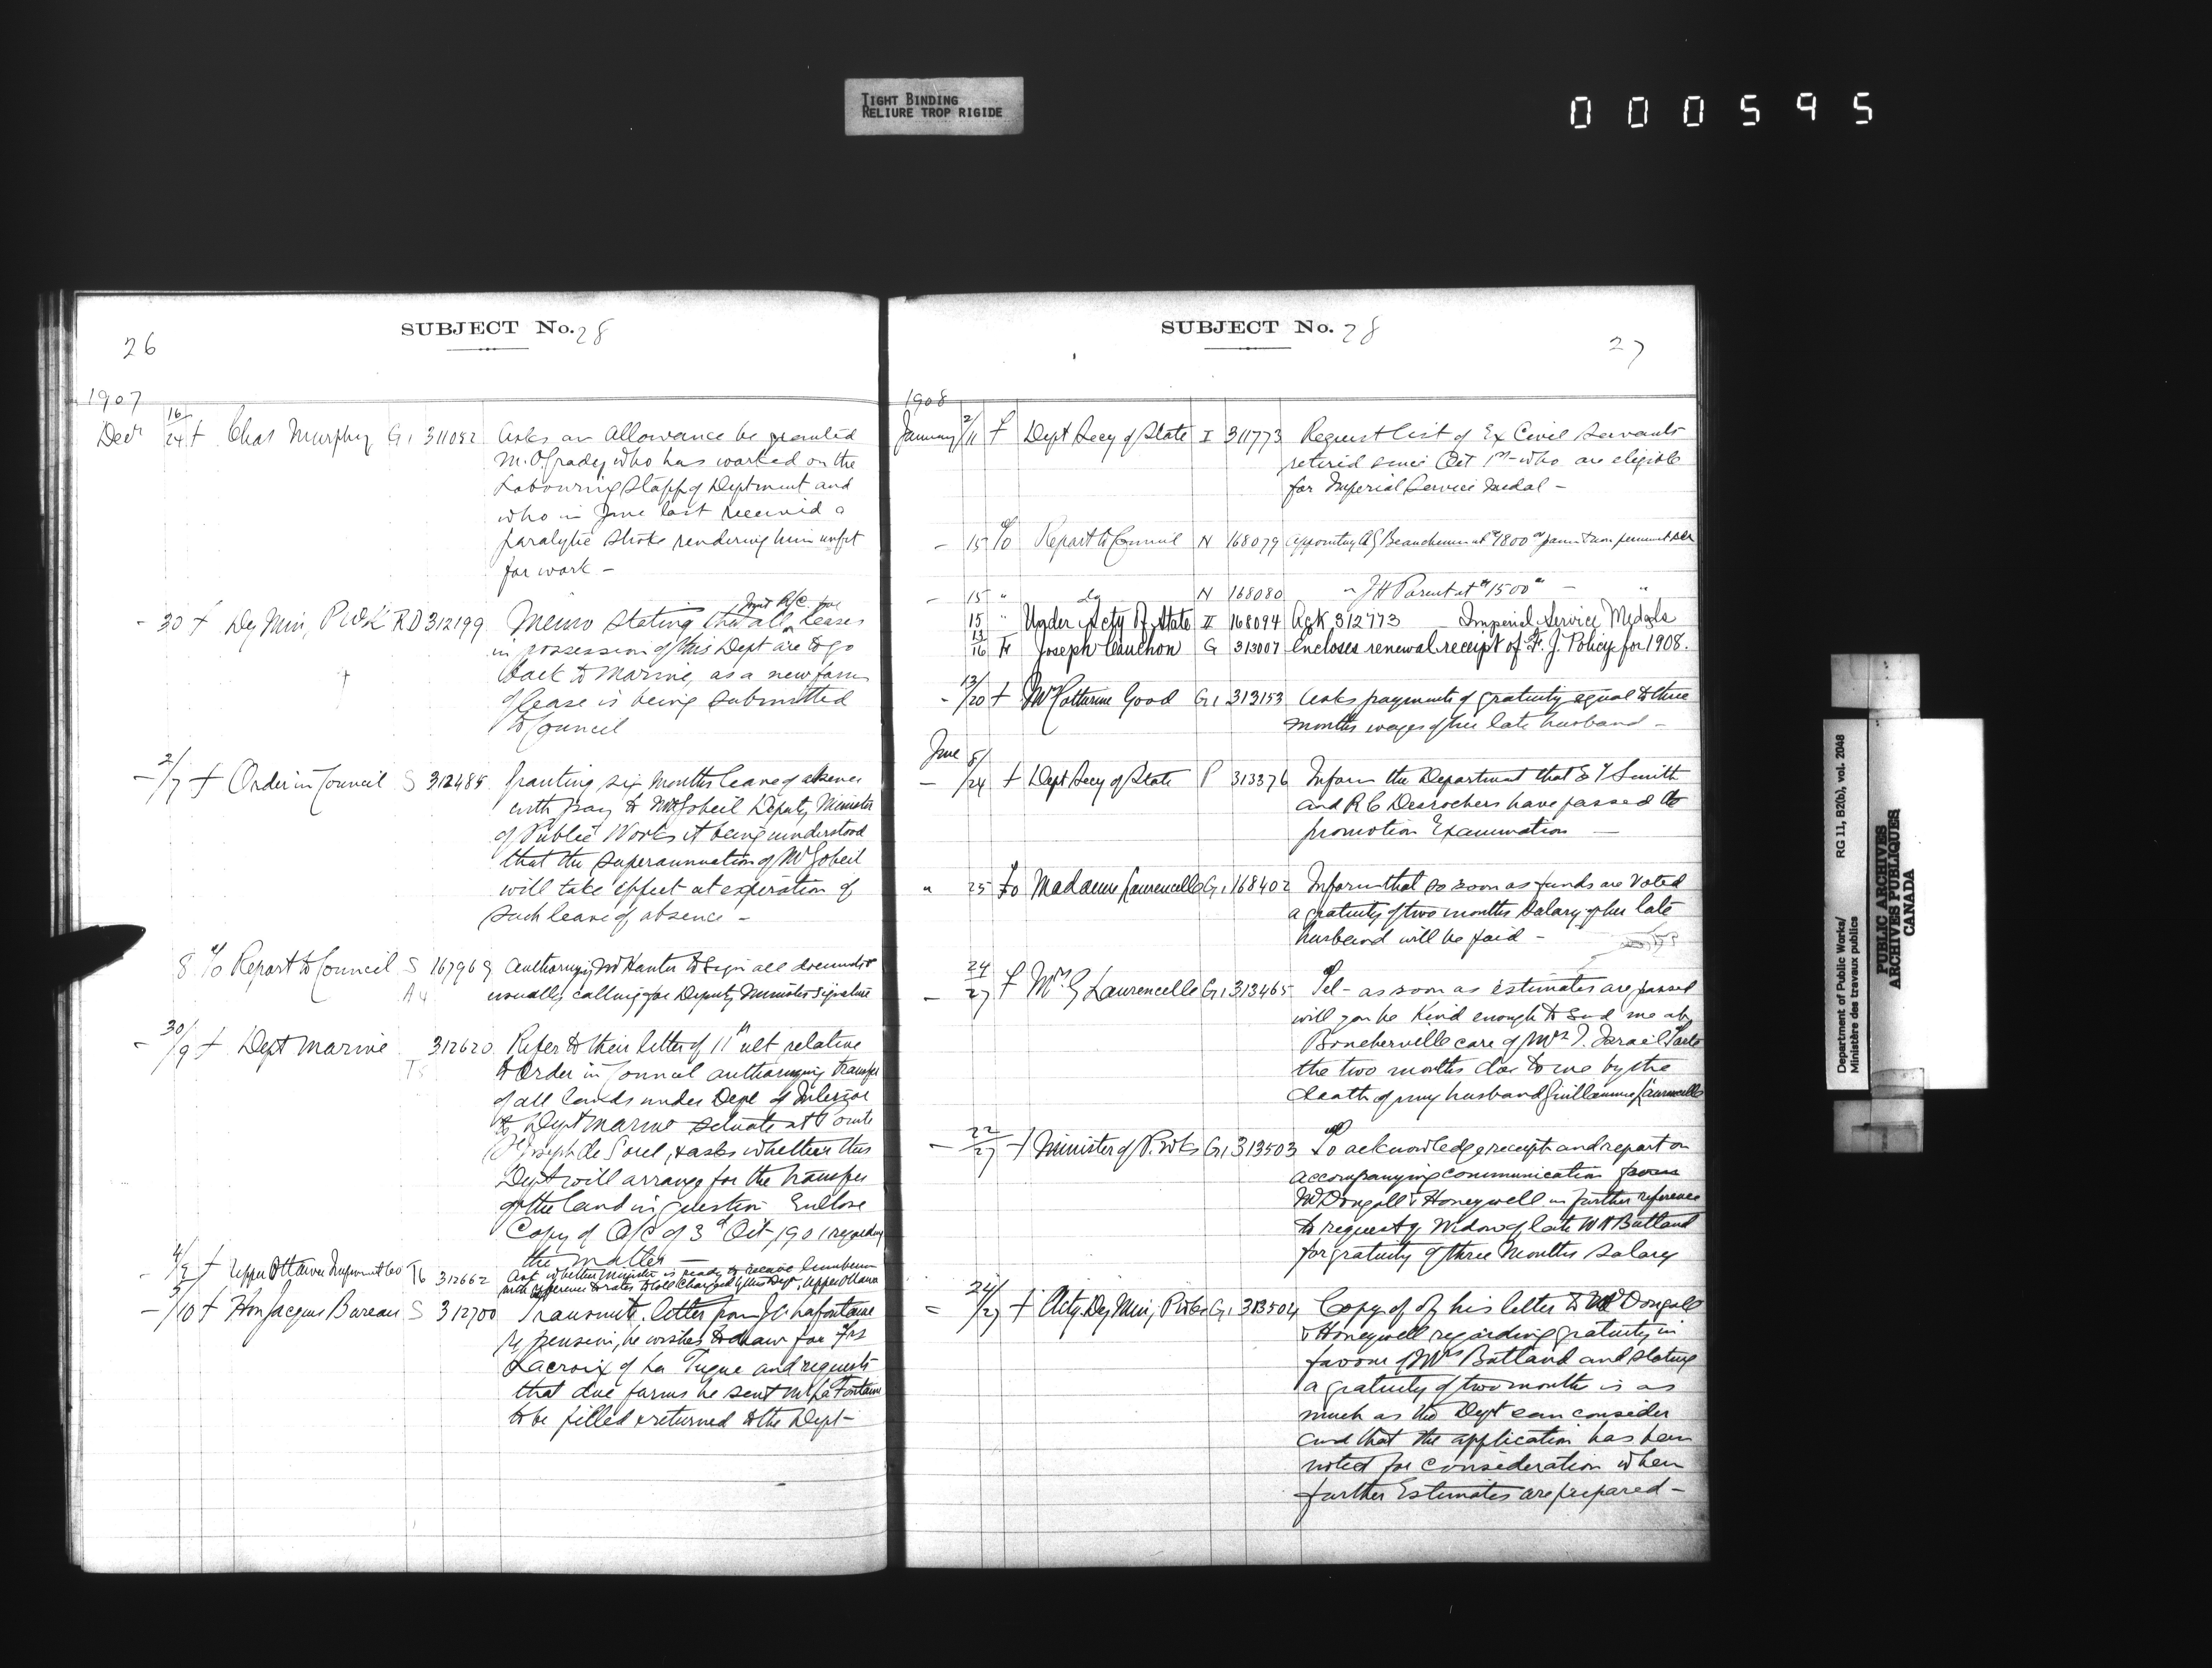 TIGHT BINDING
RELIURE TROP RIGIDE
000595
26
SUBJECT No. 28
1907
Decr 16/24 f Chas Murphy G1 311082 Asks an allowance be granted
M. O'Grady who has worked on the
Labouring Staff of Deptment and
who in June last received a
paralytic stroke rendering him unfit
for work -
- 30 f Dy Min, P Wk RD 312199 Memo stating that all Leases
in possession of this Dept are to go
back to Marine, as a new form
of lease is being submitted
to Council
- 2/7 f Order in Council S 312485 Granting six months leave of absence
with pay to Mr Gobeil Deputy Minister
of Public Works it being understood
that the superannuation of Mr Gobeil
will take effect at expiration of
such leave of absence -
8 Report to Council S 167969 Authorizing Mr Hunter to sign all documents
A4 usually calling for Deputy Ministers signature
- 30/9 f Dept Marine 312620 Refer to their letter of 11th ult relative
T5 to Order in Council authorizing transfer
of all lands under Dept of Interior
to Dept Marine situate at Pointe
St Joseph de Sorel, & asks whether this
Dept will arrange for the transfer
of the land in question Enclose
Copy of O/C of 3d Oct, 1901 regarding
the matter -
- f Upper Ottawa Improvment Co T6 312662 Ask whether Minister is ready to receive
with reference to rates to toll charged by this Dept, Upper Ottawa
- 3/10 f Hon Jacques Bureau S 312700 Transmits letter from J C Lafontaine
re pension, he wishes to draw for Frs
Lacroix of La Tuque and requests
that due forms be sent Mr La Fontaine
to be filled & returned to the Dept -
SUBJECT No. 28
27
1908
January 2/11 f Dept Secy of State I 311773 Request list of Ex Civil Servants
retired since Oct 1st - who are eligible
for Imperial Service Medal -
- 15 Report to Council N 168079 Appointing A G Beauchemin at $1800 
- 15 " do N 168080 " J H Parent at $1500 - "
15 " Under Scty Of State I 168094 Ack 312773 Imperial Service Medals
13/16 f Joseph Cauchon G 313007 Encloses renewal receipt of F. J. Policy for 1908.
- 13/20 f Mrs Catherine Good G1 313153 Asks payments of gratuity equal to three
months wages of her late husband -
June
- 8/24 f Dept Secy of State P 313376 Inform the Department that E T Smith
and R C Desrochers have passed the
promotion Examination -
" 25 To Madame Laurencelle G1 168402 Inform that so soon as funds are voted
a gratuity of two months salary of her late
husband will be paid -
- 24/27 f Mrs G Laurencelle G1 313465 Tel - as soon as estimates are passed
will you be kind enough to send me at
Boucherville care of Mrs J. Israel Tarte
the two months due to me by the
death of my husband Guillaume Laurencelle
- 22/27 f Minister of P. Wks G1 313503 To acknowledge receipt and report on
accompanying communication from
McDougall & Honeywell in further reference
to request of Widow of late W H Butland
for gratuity of three months salary
- 24/27 f Actg Dy Min, P Wks G1 313504 Copy of of his letter to McDougall
& Honeywell regarding gratuity in
favour of Mrs Butland and stating
a gratuity of two months is as
much as the Dept can consider
and that the application has been
noted for consideration when
further Estimates are prepared -
Department of Public Works/
Ministère des travaux publics
RG 11, B2(b), vol. 2048
PUBLIC ARCHIVES
ARCHIVES PUBLIQUES
CANADA